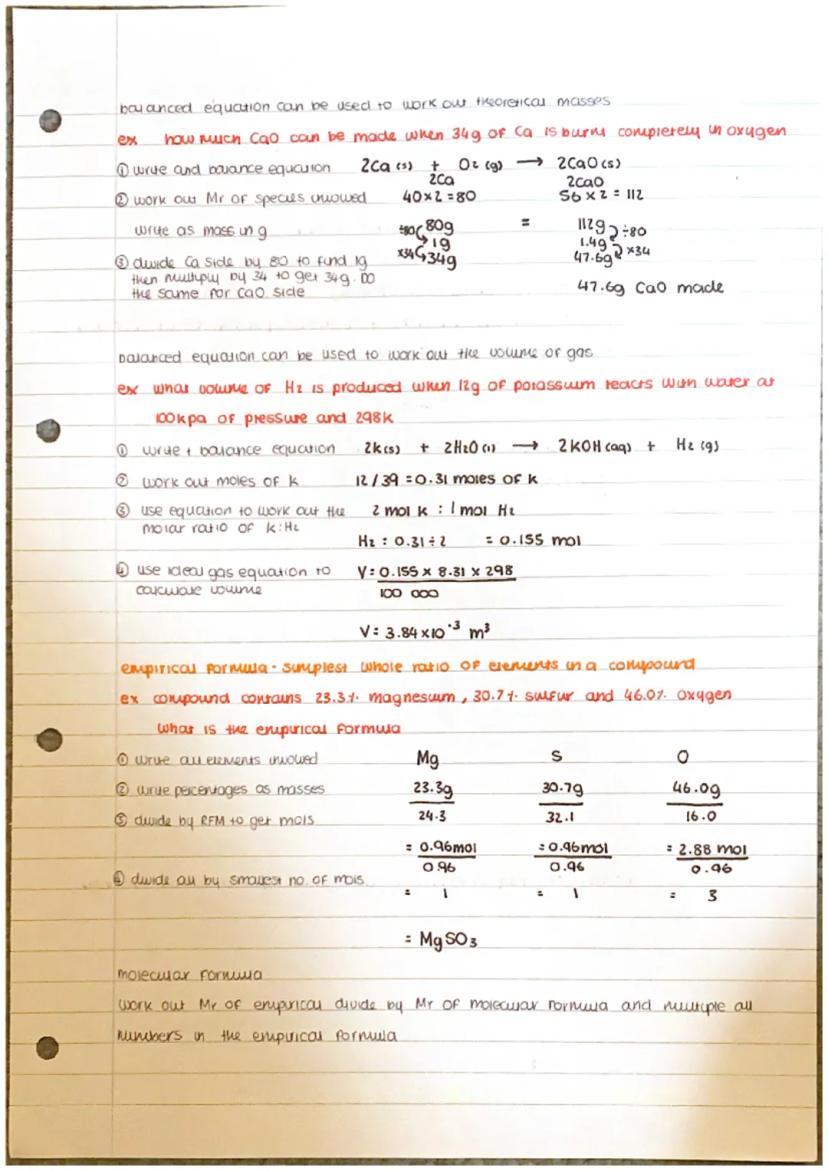 balanced equation can be used to work out theoretical masses
ex how much CaO can be made when 34g of Ca is burnt completely in oxygen
① write and balance equation 2Ca (s) + O2 (g) → 2CaO (s)
2Ca 2CaO
② work out Mr of species involved 40 x 2 = 80 56 x 2 = 112
write as mass in g ÷80 80g = 112g ÷80
1g 1.4g
③ divide Ca side by 80 to find 1g x34 34g 47.6g x34
then multiply by 34 to get 34g. DO
the same for CaO side 47.6g CaO made
balanced equation can be used to work out the volume of gas
ex what volume of H2 is produced when 12g of potassium reacts with water at
100kpa of pressure and 298k
① write + balance equation 2k(s) + 2H2O (l) → 2KOH (aq) + H2 (g)
② work out moles of k 12 / 39 = 0.31 moles of k
③ use equation to work out the 2 mol k : 1 mol H2
molar ratio of k:H2
H2 : 0.31 ÷ 2 = 0.155 mol
④ use ideal gas equation to V = 0.155 x 8.31 x 298
calculate volume 100 000
V = 3.84 x10⁻³ m³
empirical formula - simplest whole ratio of elements in a compound
ex compound contains 23.3% magnesium, 30.7% sulfur and 46.0% oxygen
what is the empirical formula
① write all elements involved Mg S O
② write percentages as masses 23.3g 30.7g 46.0g
③ divide by RFM to get mols 24.3 32.1 16.0
= 0.96mol = 0.96mol = 2.88 mol
0.96 0.96 0.96
④ divide all by smallest no. of mols
= 1 = 1 = 3
= MgSO3
molecular formula
work out Mr of empirical divide by Mr of molecular formula and multiple all
numbers in the empirical formula